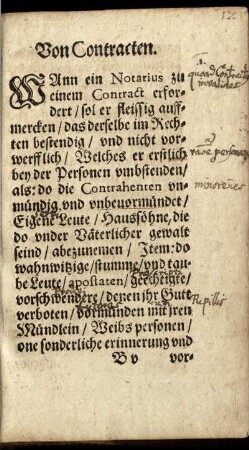 Von Contracten.
WAnn ein Notarius zu
einem Contract erfor-
dert / sol er fleissig auff-
mercken / das derselbe im Rech-
ten bestendig / vnd nicht vor-
werfflich / Welches er erstlich
bey der Personen vmbstenden /
als: do die Contrahenten vn-
mündig vnd vnbeuormündet /
Eigene Leute / Haussöhne, die
do vnder Väterlicher gewalt
seind / abezunemen / Item: do
wahnwitzige / stumme / vnd tau-
be Leute / apostaten / geechtigte /
vorschwendere / denen ihr Gutt
verboten / vormünden mit jren
Mündlein / Weibs personen /
one sonderliche erinnerung vnd
B v vor-
quoad Contractus
personas
minorennes
Pupillis